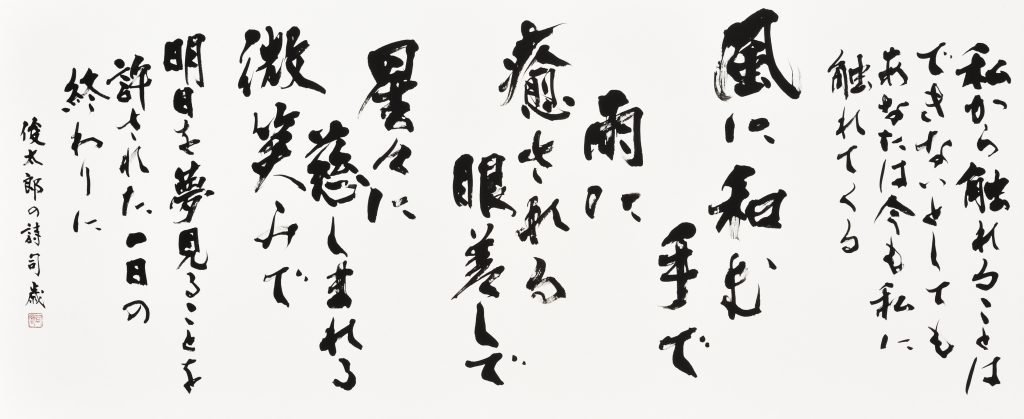 私から触れることは
できないとしても
あなたは今も私に
触れてくる
風に和む
手で
雨に
癒される
眼差しで
星々に
慈しまれる
微笑みで
明日を夢見ることを
許された一日の
終わりに
俊太郎の詩 司歳